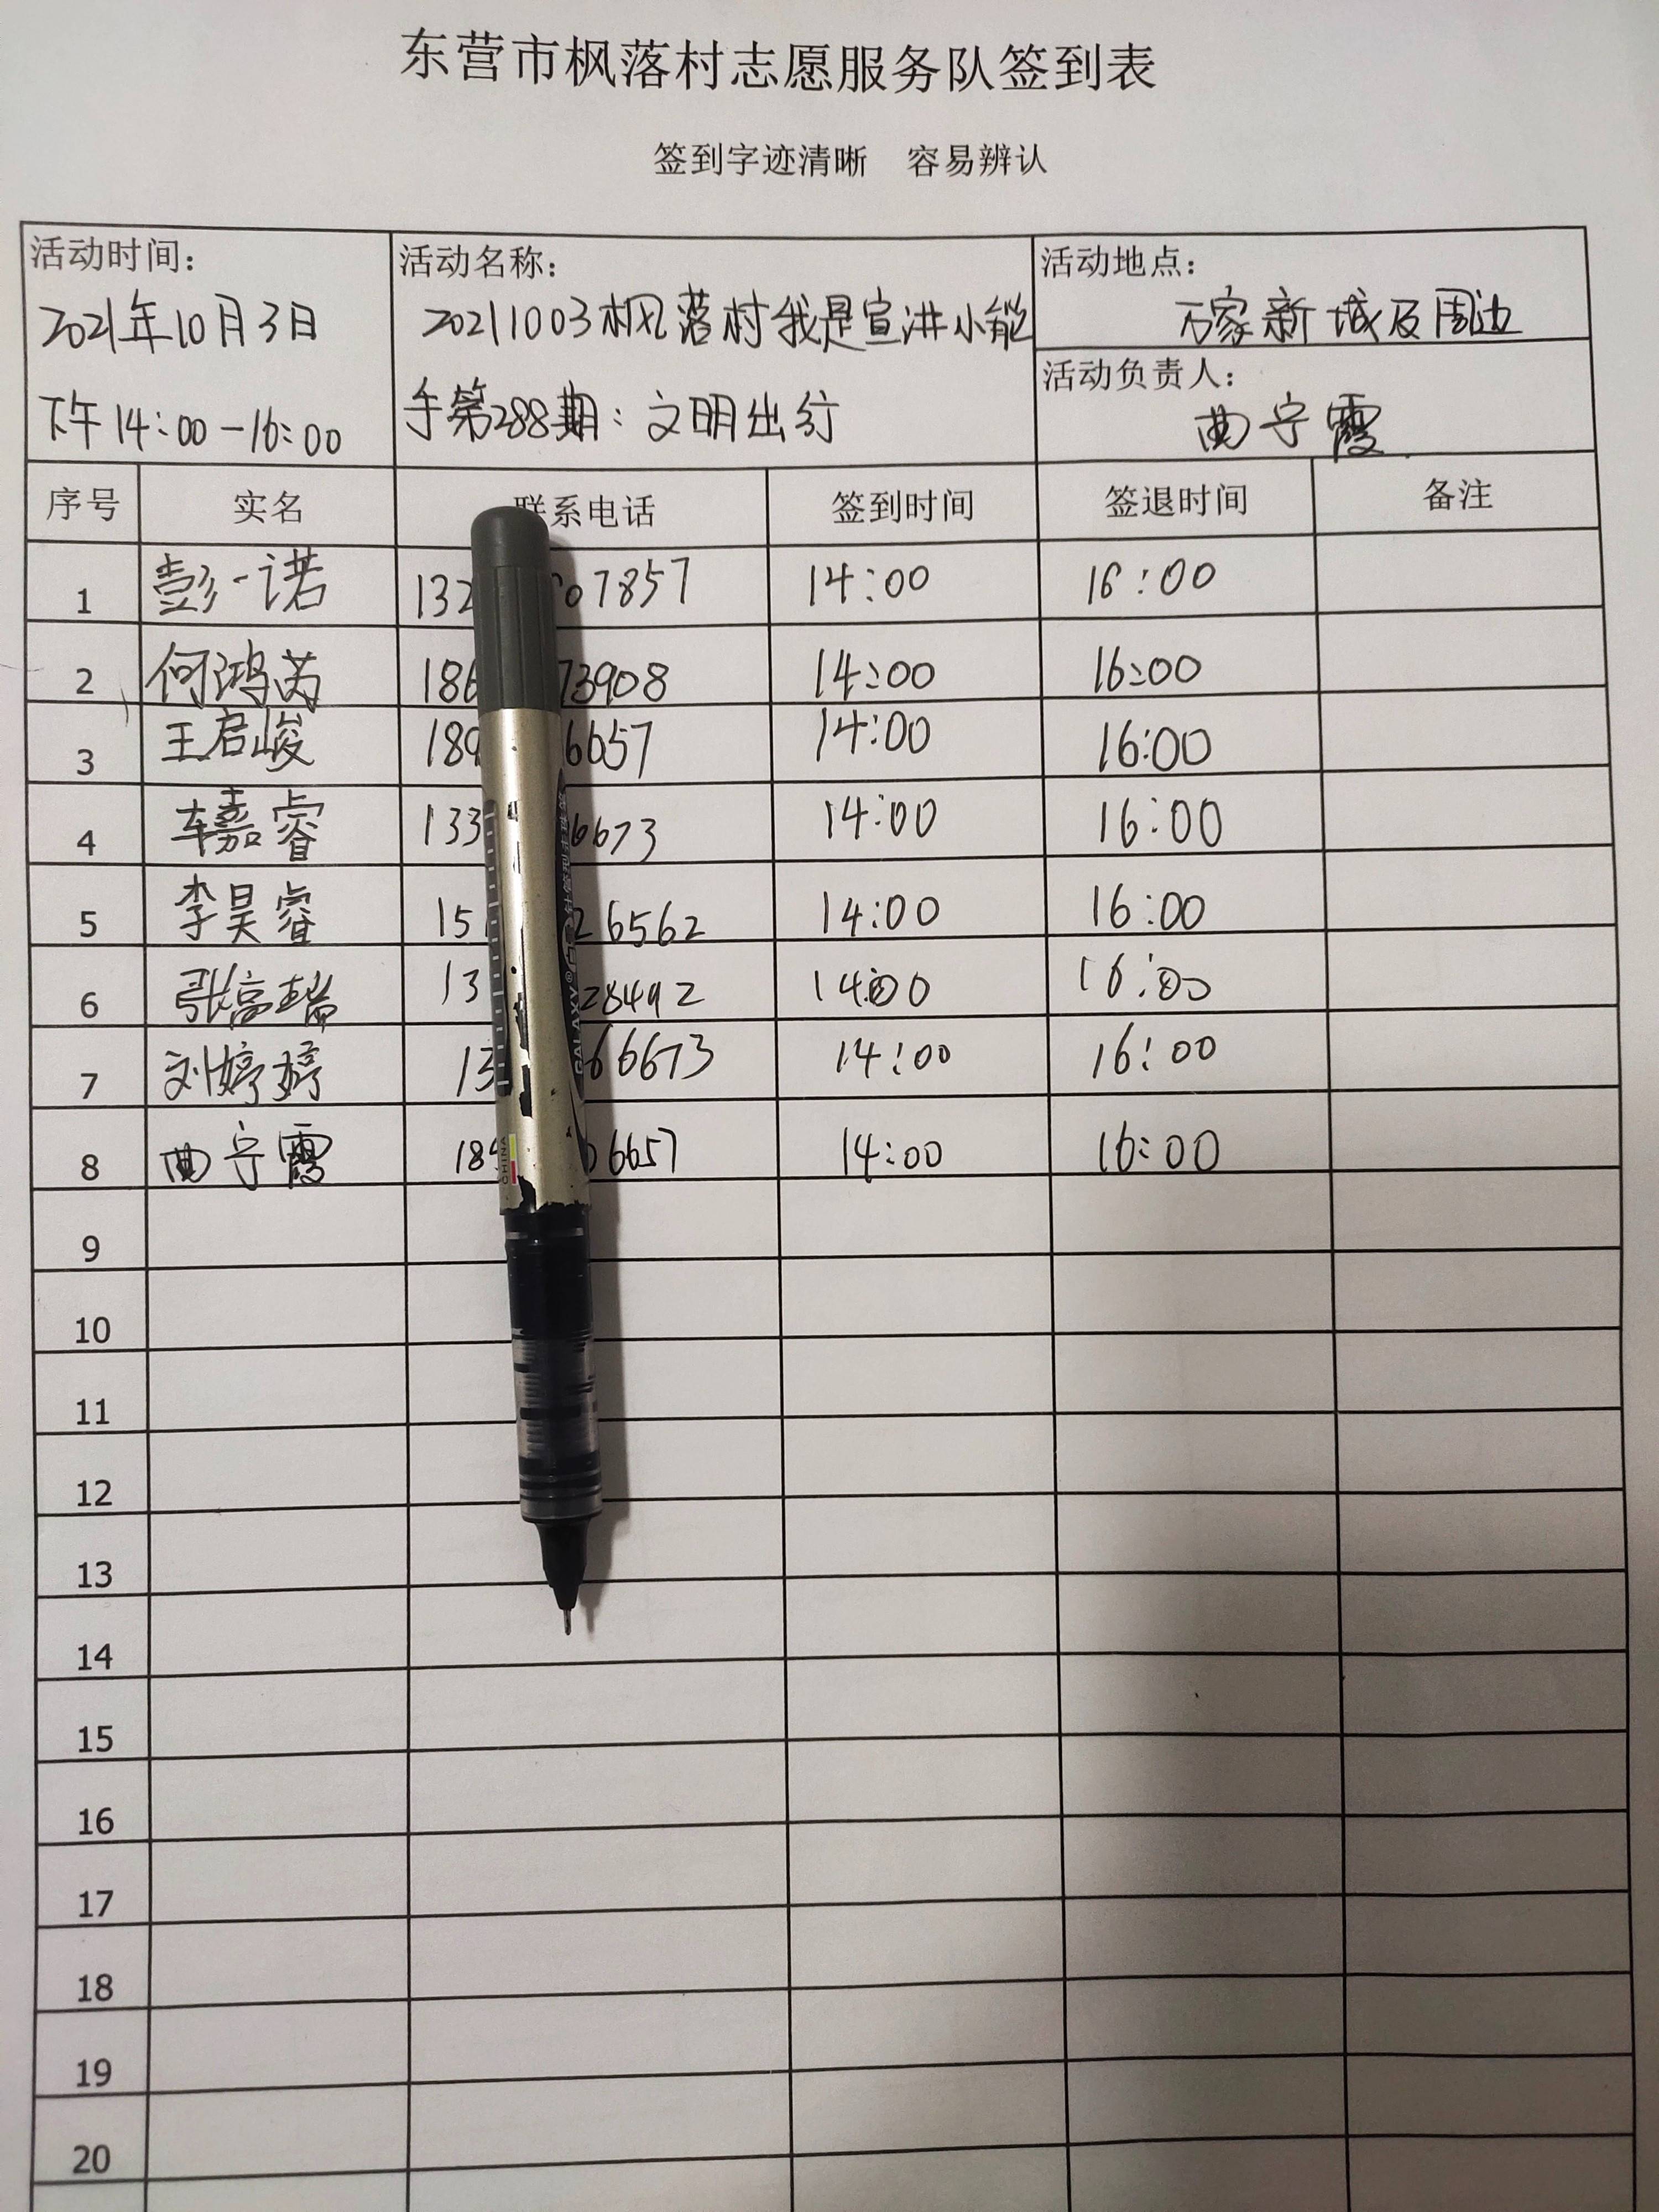 东营市枫落村志愿服务队签到表
签到字迹清晰 容易辨认
活动时间：
2021年10月3日
下午14:00-16:00
活动名称：
20211003枫落村我是宣讲小能
手第288期：文明出行
活动地点：
万家新城及周边
活动负责人：
曲宁霞
序号 实名 联系电话 签到时间 签退时间 备注
1 彭一诺 132 07857 14:00 16:00
2 何鸿芮 186 73908 14:00 16:00
3 王启峻 189 6657 14:00 16:00
4 车嘉睿 133 6673 14:00 16:00
5 李昊睿 151 26562 14:00 16:00
6 张高瑞 13 28492 14:00 16:00
7 刘婷婷 13 66673 14:00 16:00
8 曲宁霞 189 6657 14:00 16:00
9
10
11
12
13
14
15
16
17
18
19
20
GALAXY®